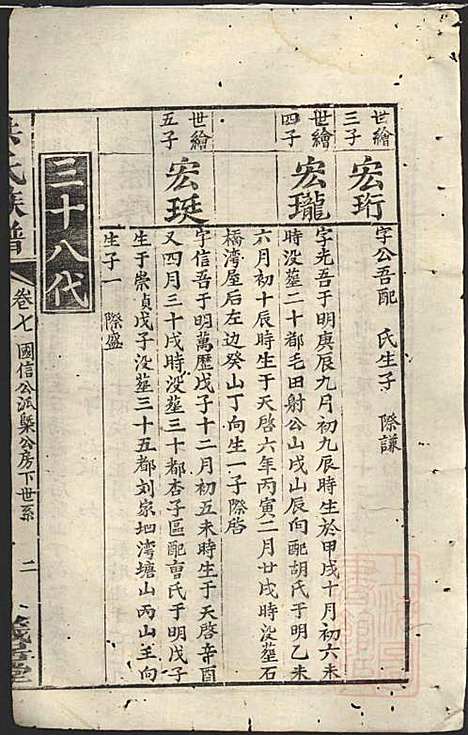 世繪
三子
宏珩
字公吾配　氏生子　際謙
世繪
四子
宏瓏
字光吾于明庚辰九月初九辰時生於甲戌十月初六未
時没塟二十都毛田射公山戌山辰向配胡氏于明乙未
六月初十辰時生于天啓六年丙寅二月廿戌没塟石
橋湾屋后左边癸山丁向生一子際啓
世繪
五子
宏珽
字信吾于明萬歷戊子十二月初五未時生于天啓辛酉
又四月三十戌時没塟三十都杏子區配曺氏于明戊子
生于崇貞戊子没塟三十五都刘家坦湾塘山丙山壬向
生子一　際盛
三十八代
氏族譜
卷七
國信公派㮣公房下世系
二